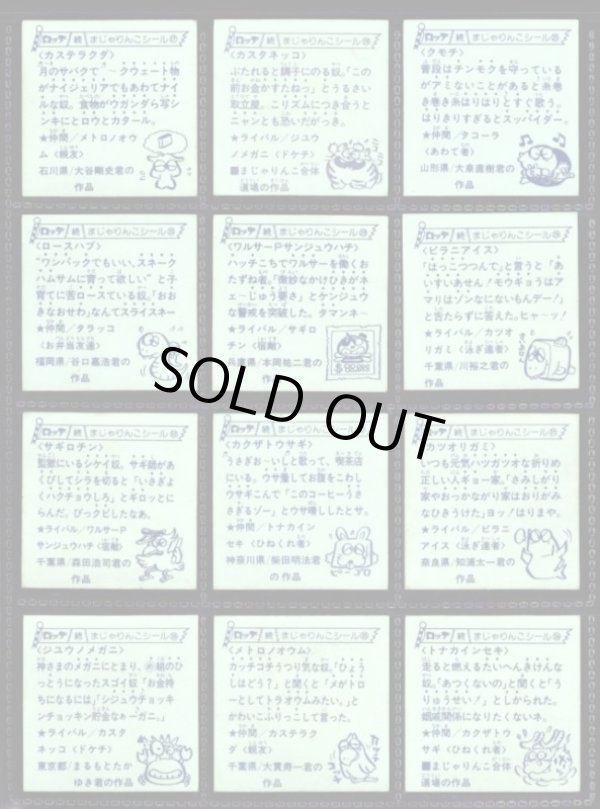 ロッテ 続 まじゃりんこシール
〈カステラクダ〉
月のサバクで
クウェート物
がナイジェリアでもあわてナイ
ルな奴。食物がウガンダら写シ
ンキにとロウとカタール。
★仲間/メトロノオウ
ム〈親友〉
石川県/大谷剛史君の
作品
ロッテ 続 まじゃりんこシール
〈カスタネッコ〉
ぶたれると調子にのる奴。「この
前お金かすたねっ」とうるさい
取立屋。こリズムにつき合うと
ニャンとも思いだがっき。
★ライバル/ジュウ
ノメガニ〈ドケチ〉
■まじゃりんこ合体
道場の作品
ロッテ 続 まじゃりんこシール
〈クモチ〉
普段はチンモクを守っている
がアミないことがあると糸巻
き巻き糸はりはりとすぐ歌う。
はりきりすぎるとスッパイダー。
★仲間/タコーラ
〈あわて者〉
山形県/大泉直樹君の
作品
ロッテ 続 まじゃりんこシール
〈ロースハブ〉
"ワンパックでもいい、スネーク
ハムサムに育って欲しい" と子
育てに苦ロースている奴。「おお
きなおせわ」なんてスライスネー
★仲間/タラッコ
〈お弁当友達〉
福岡県/谷口嘉浩君の
作品
ロッテ 続 まじゃりんこシール
〈ワルサーPサンジュウハチ〉
ハッチこちでワルサーを働くお
たずね者。「微妙なかけひきがネ
ェーじゅう要さ」とケンジュウ
な警戒を突破した。タマンネー
★ライバル/サギロ
チン〈宿敵〉
兵庫県/本岡祐二君の
作品
ロッテ 続 まじゃりんこシール
〈ピラニアイス〉
「はっこつつんで」と言うと「あ
いすいあせん!モウギョうはア
マリはゾンなにないもんデー!」
と苦たらずに答えた。ヒャーッ!
★ライバル/カツオ
リガミ〈泳ぎ達者〉
千葉県/川裕之君の
作品
SOLD OUT
ロッテ 続 まじゃりんこシール
〈サギロチン〉
監獄にいるシケイ奴。サギ師があ
くびしてシラを切ると「いさぎよ
くハクチョウしろ」とギロッとに
らんだ。びっクビしたなあ。
★ライバル/ワルサーP
サンジュウハチ〈宿敵〉
千葉県/森田浩司君の
作品
ロッテ 続 まじゃりんこシール
〈カクザトウサギ〉
うさぎお〜いしと歌って、喫茶店
にいる。ウサ癒してお腹をこわし
ウサギこんで「このコーヒーうさ
さぎるゾー」とウサ晴ししたとサ。
★仲間/トナカイン
セキ〈ひねくれ者〉
神奈川県/柴田明法君
の作品
ロッテ 続 まじゃりんこシール
〈カツオリガミ〉
いつも元気ハツガツオな折りめ
正しい人ギョー家。「さみしがり
家やおっかながり家はおりがみ
なひきうけた」ヨッ!はりまや。
★ライバル/ピラニ
アイス〈泳ぎ達者〉
奈良県/知浦太一君の
作品
ロッテ 続 まじゃりんこシール
〈ジュウノメガニ〉
神さまのメガニにとまり、
組のひ
っとうになったスゴイ奴。「お金持
ちになるには」「シジュウチョッキ
ンチョッキン貯金なぁーガニ。」
★ライバル/カスタ
ネッコ〈ドケチ〉
東京都/まるもとたか
ゆき君の作品
ロッテ 続 まじゃりんこシール
〈メトロノオウム〉
カッチコチうつり気な奴。「ひょう
しはどう?」と聞くと「メがトロ
ーとしてトラオウムみたい。」と
かわいこぶりっこして言った。
★仲間/カステラク
ダ〈親友〉
千葉県/大貫寿一君の
作品
ロッテ 続 まじゃりんこシール
〈トナカインセキ〉
走ると燃えるたいへんきけんな
奴。「あつくないの」と聞くと「う
りゅうせい!」としかられた。
蛾滅関係になりたくないネ。
★仲間/カクザトウ
サギ〈ひねくれ者〉
■まじゃりんこ合体
道場の作品